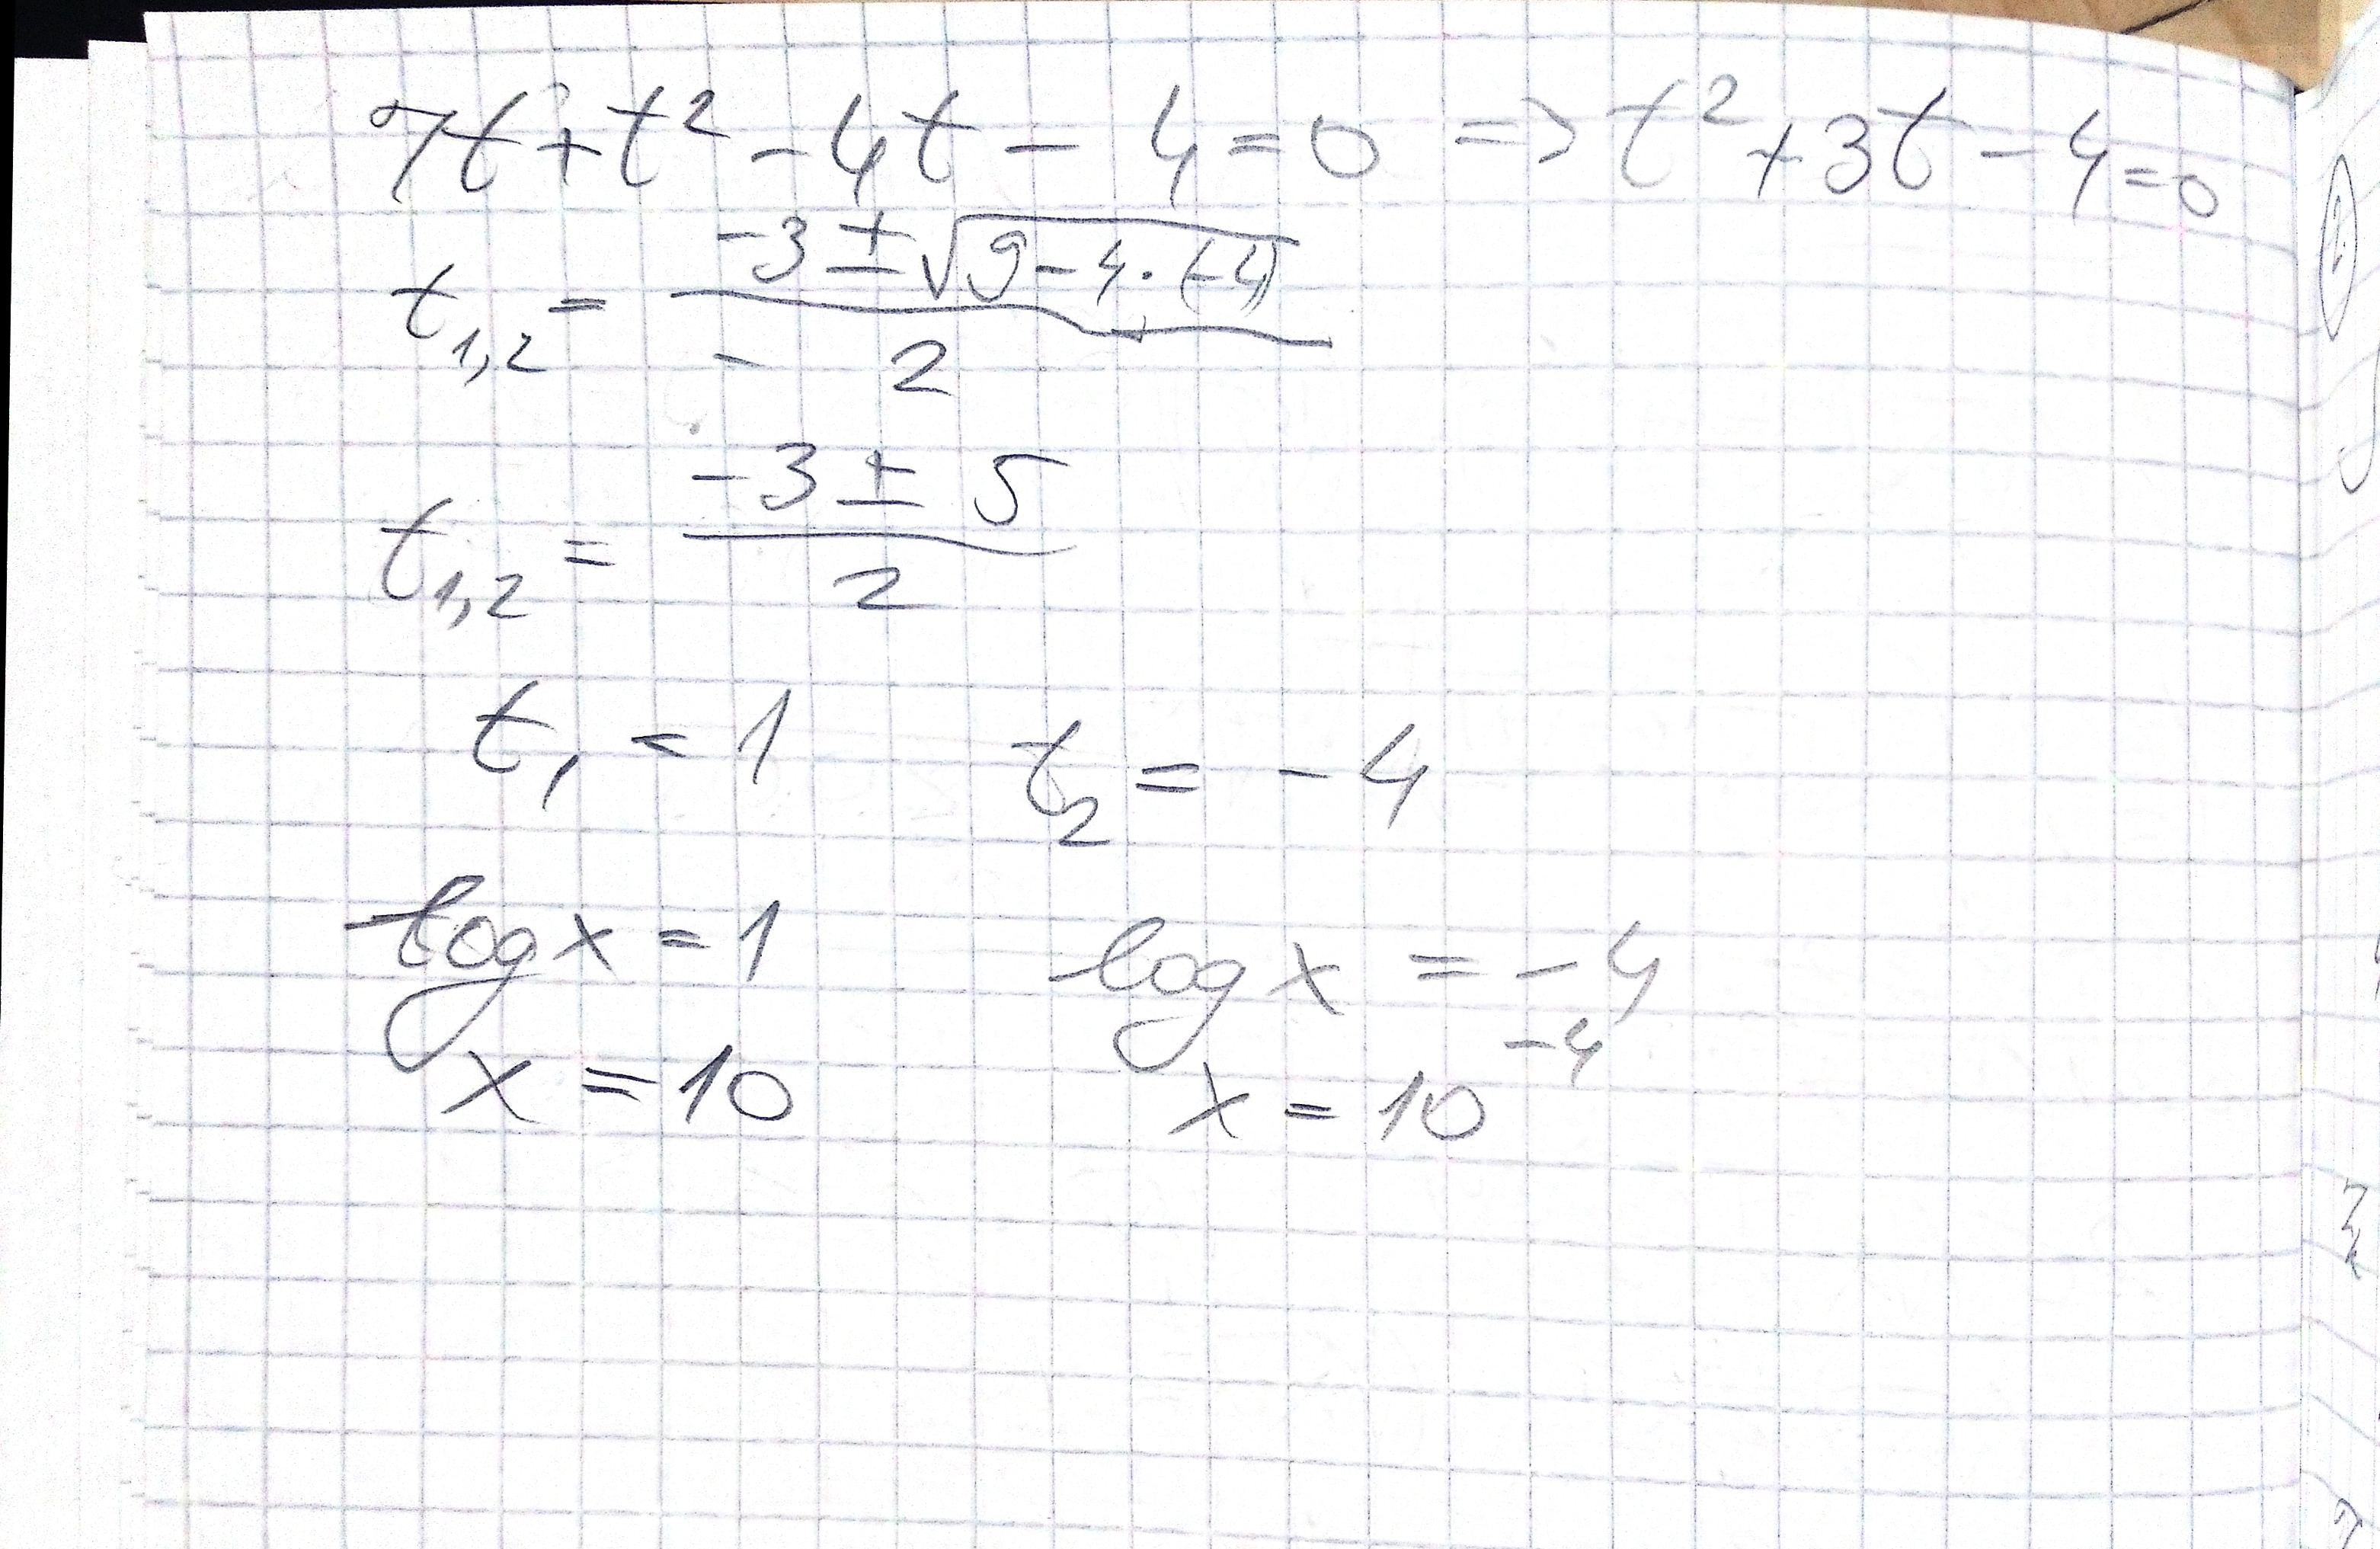 7t + t² - 4t - 4 = 0 => t² + 3t - 4 = 0
t₁,₂ = (-3 ± √(9 - 4 · (-4))) / 2
t₁,₂ = (-3 ± 5) / 2
t₁ = 1 t₂ = -4
log x = 1 log x = -4
x = 10 x = 10⁻⁴